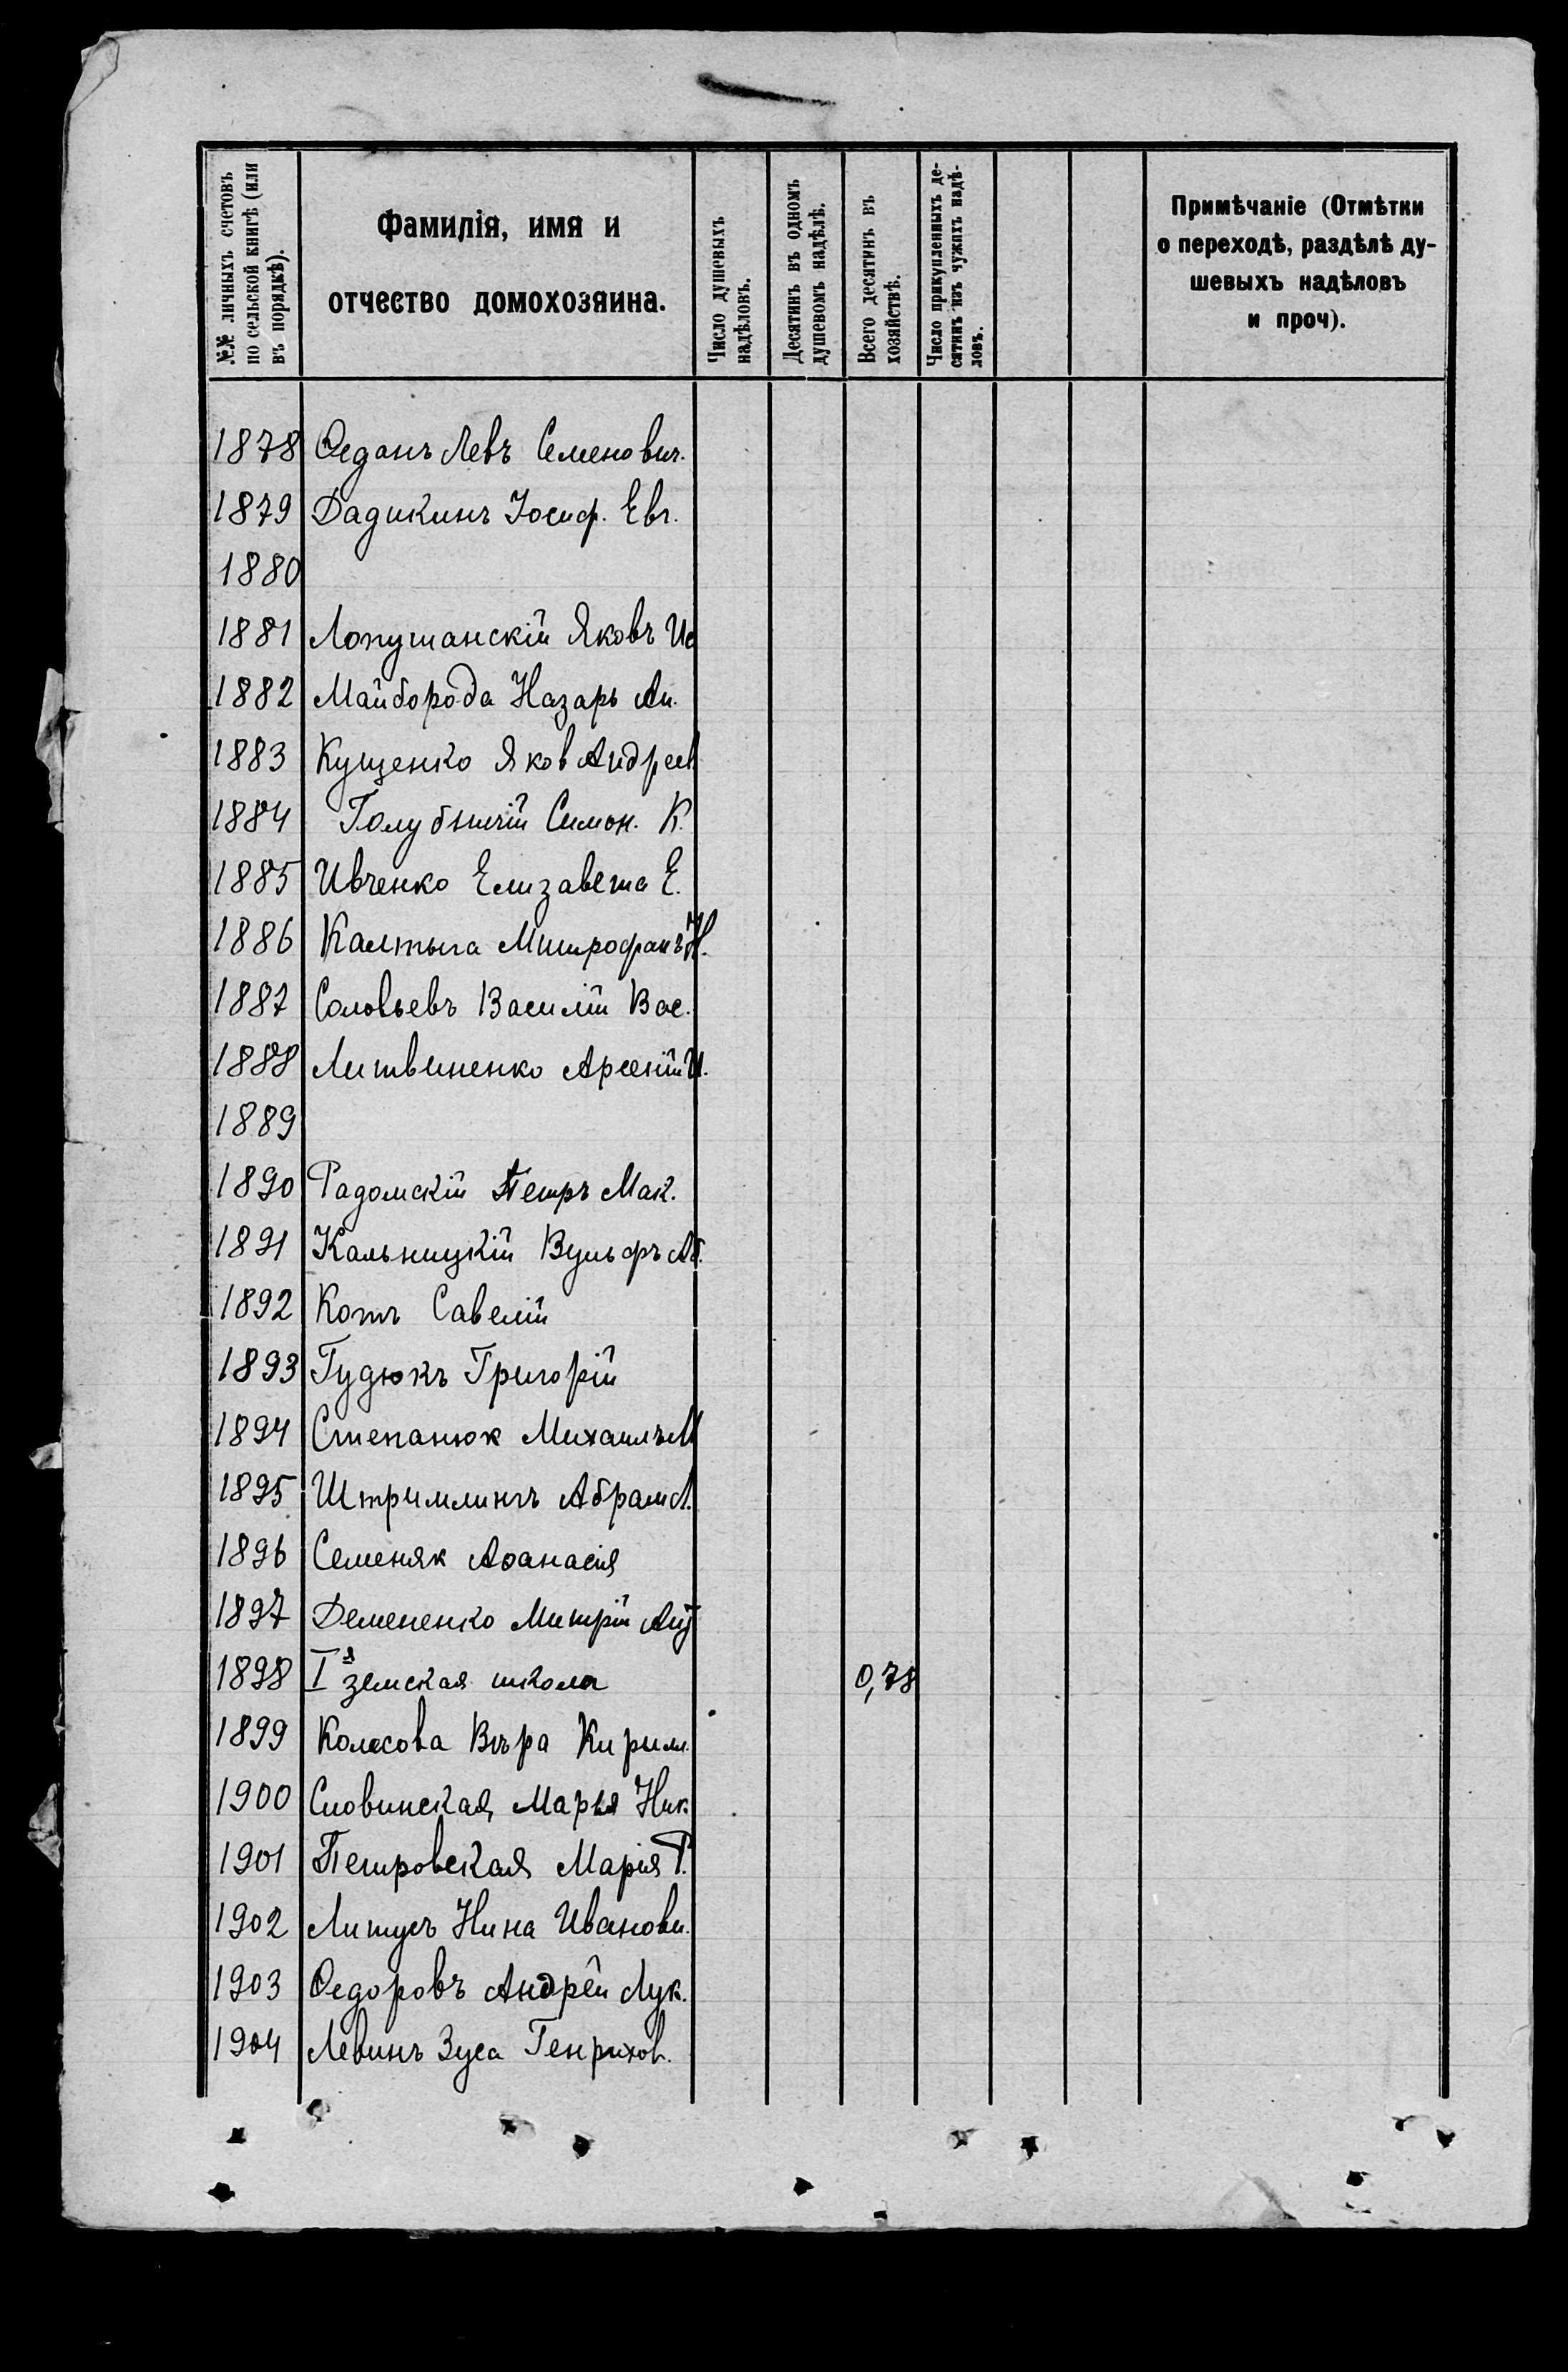 №№ личныхъ счетовъ по сельской книгѣ (или въ порядкѣ).
Фамилія, имя и
отчество домохозяина.
Число душевыхъ надѣловъ.
Десятинъ въ одномъ душевомъ надѣлѣ.
Всего десятинъ въ хозяйствѣ.
Число прикупленныхъ десятинъ изъ чужихъ надѣловъ.
Примѣчаніе (Отмѣтки
о переходѣ, раздѣлѣ ду-
шевыхъ надѣловъ
и проч).
1878 Ѳеданъ Левъ Семенович.
1879 Дадикинъ Іосиф. Евг.
1880
1881 Лопушанскій Яковъ Ис
1882 Майборода Назарь Ан.
1883 Кущенко Яков Андреев
1884 Голубничій Симон. К.
1885 Ивченко Елизавета Е.
1886 Калтыга Митрофанъ Н.
1887 Соловьевъ Василій Вас.
1888 Литвиненко Арсеній И.
1889
1890 Радомскій Петръ Мак.
1891 Кальницкій Вульфъ Аб.
1892 Котъ Савелій
1893 Гудюкъ Григорій
1894 Степанюк Михаилъ М
1895 Штримлингъ Абрам Л.
1896 Семеняк Аѳанасія
1897 Демененко Митрій
1898 I я земская школа 0,78
1899 Колесова Вѣра Кирилл.
1900 Словинская Марья Ник.
1901 Петровская Марія Г.
1902 Литусъ Нина Ивановн.
1903 Ѳедоровъ Андрей Лук.
1904 Левинъ Зуса Генрихов.